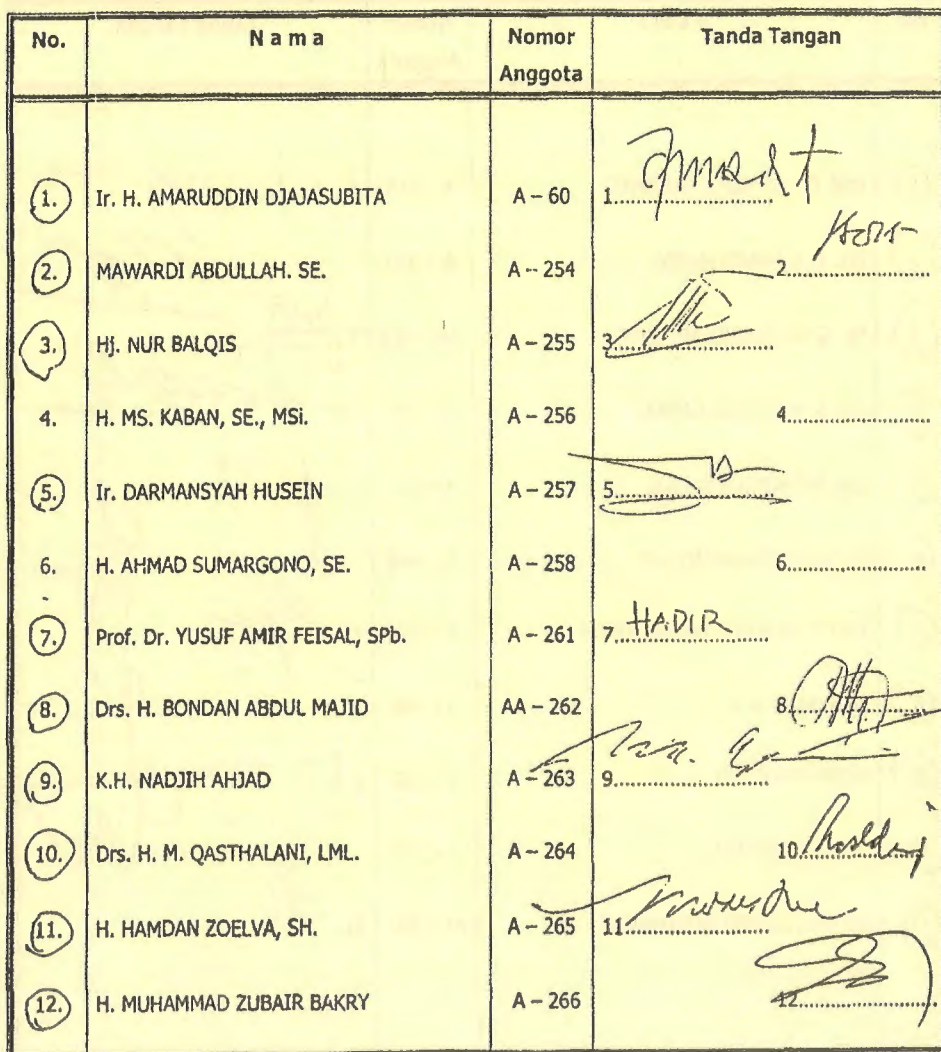 No. N a m a Nomor Anggota Tanda Tangan
1. Ir. H. AMARUDDIN DJAJASUBITA A – 60 1......................
2. MAWARDI ABDULLAH. SE. A – 254 2......................
3. Hj. NUR BALQIS A – 255 3......................
4. H. MS. KABAN, SE., MSi. A – 256 4......................
5. Ir. DARMANSYAH HUSEIN A – 257 5......................
6. H. AHMAD SUMARGONO, SE. A – 258 6......................
7. Prof. Dr. YUSUF AMIR FEISAL, SPb. A – 261 7. HADIR
8. Drs. H. BONDAN ABDUL MAJID AA – 262 8......................
9. K.H. NADJIH AHJAD A – 263 9......................
10. Drs. H. M. QASTHALANI, LML. A – 264 10......................
11. H. HAMDAN ZOELVA, SH. A – 265 11......................
12. H. MUHAMMAD ZUBAIR BAKRY A – 266 12......................